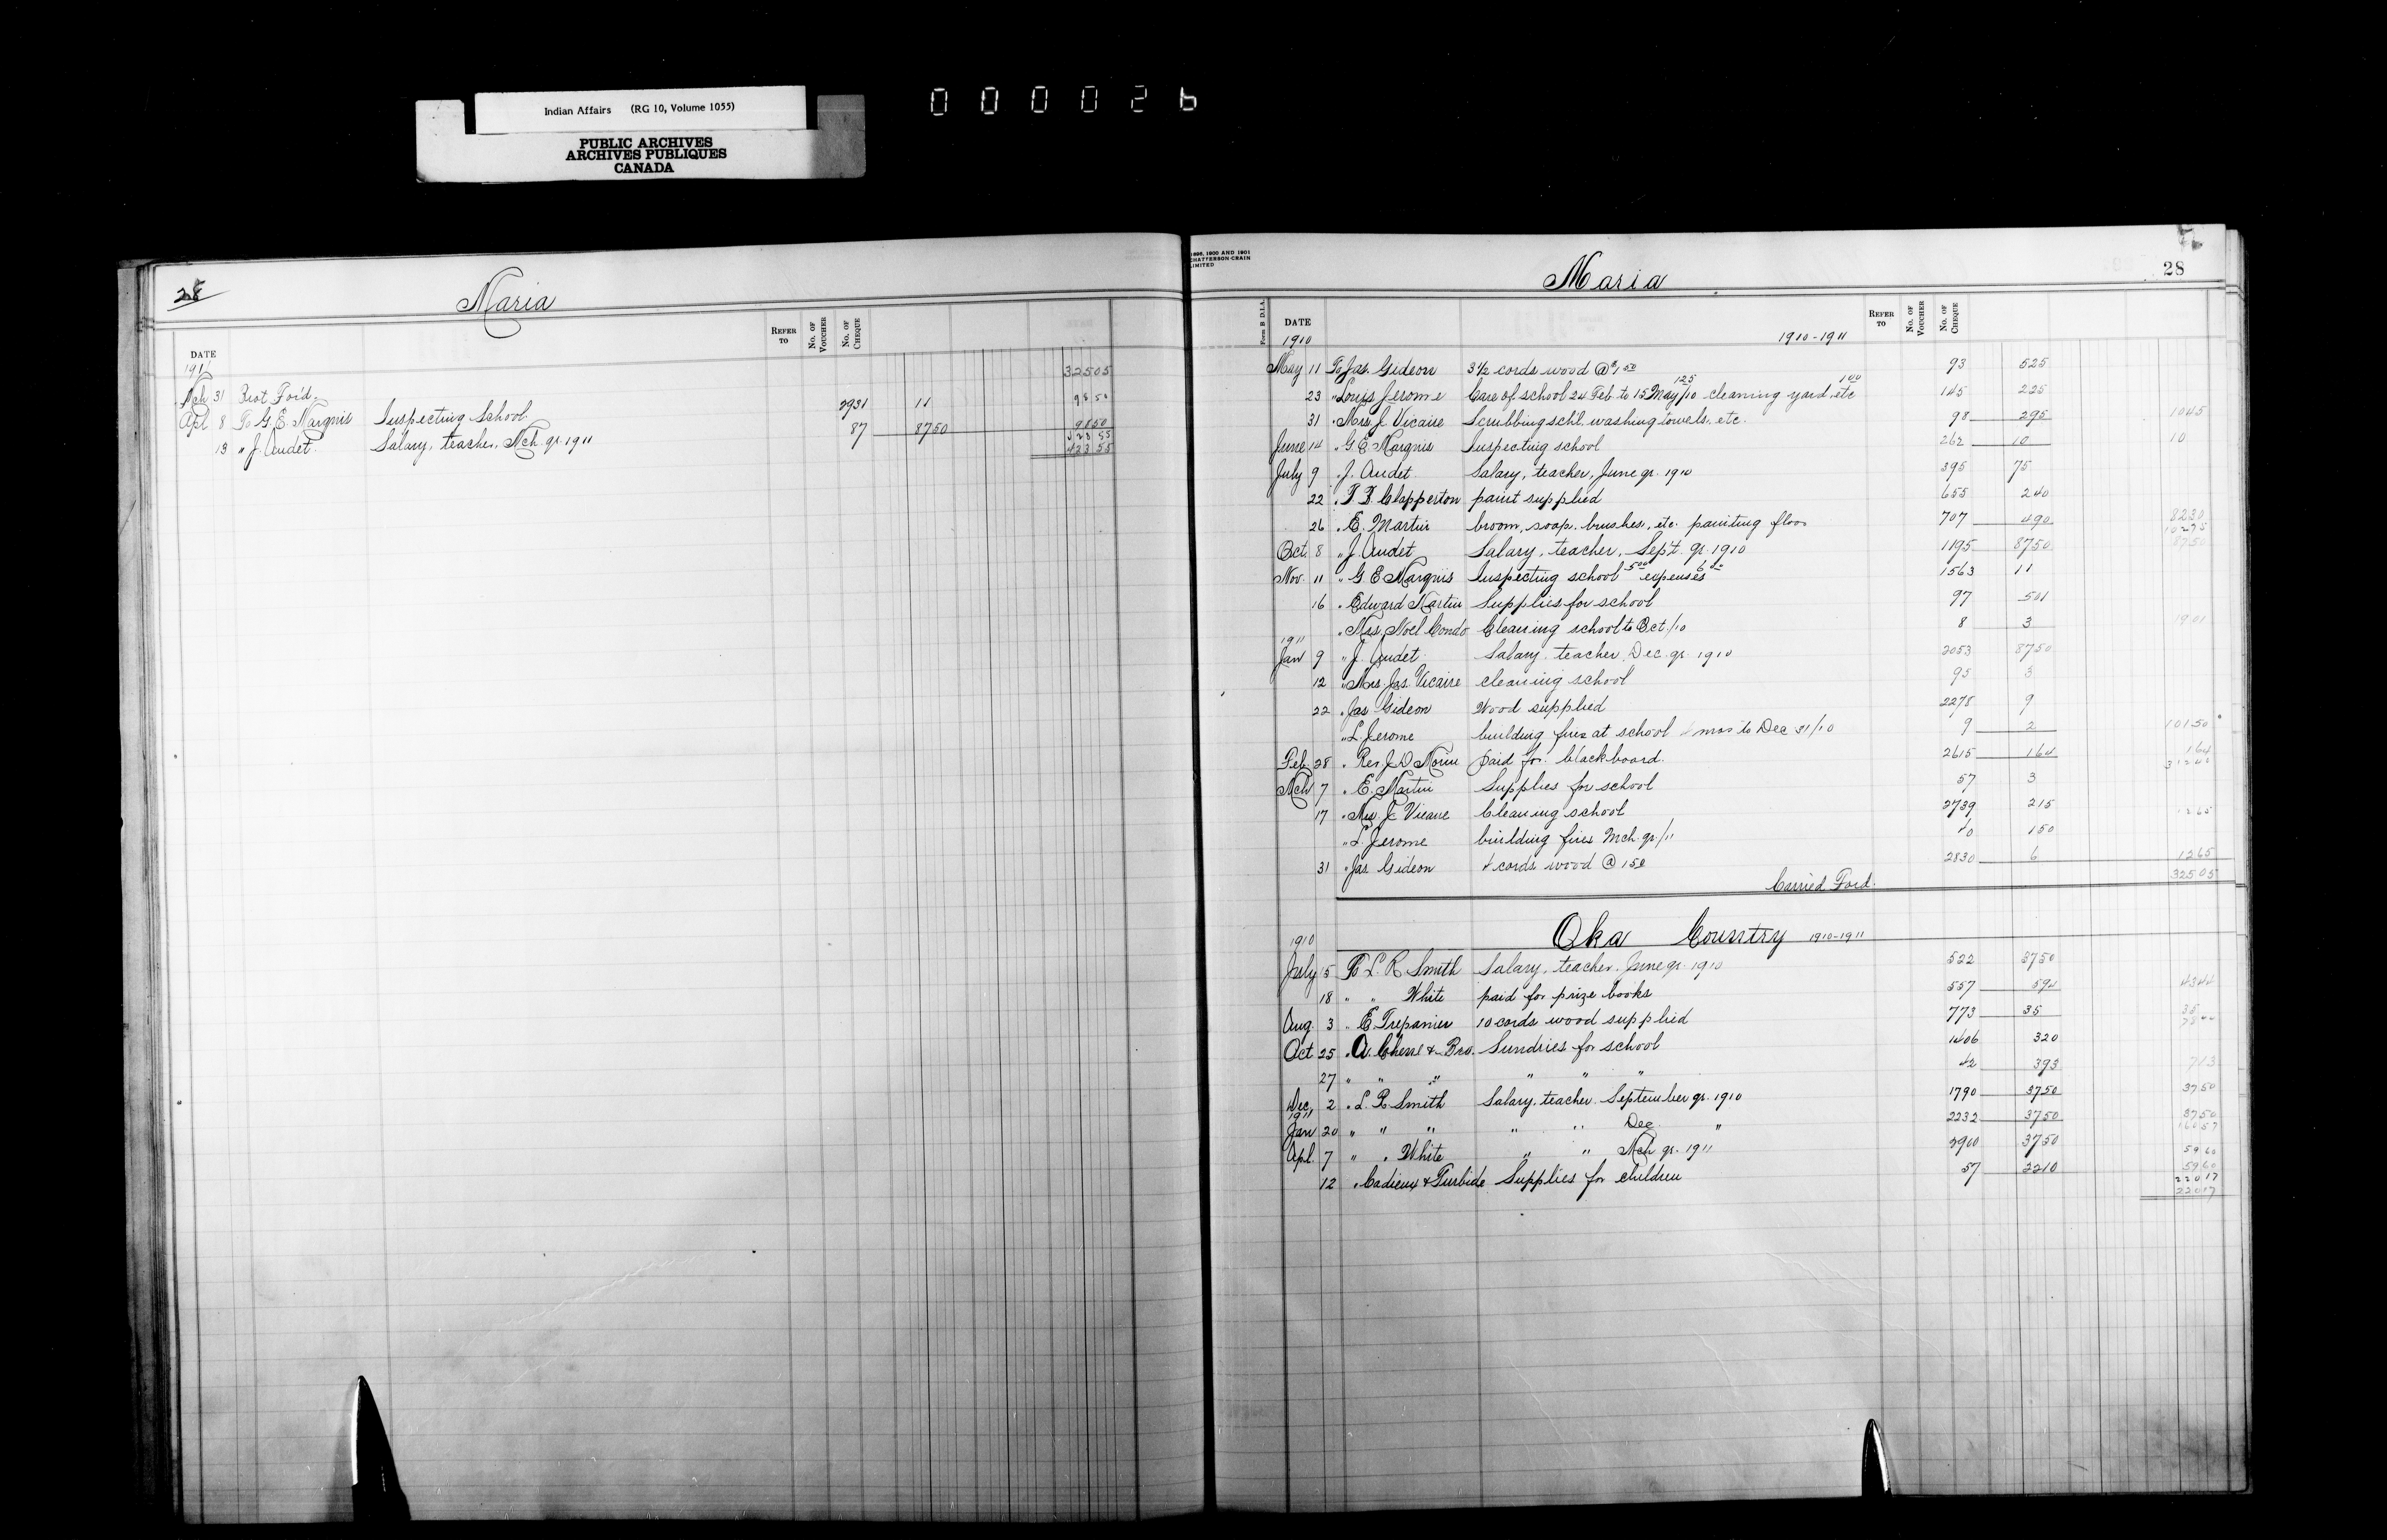 Indian Affairs (RG 10, Volume 1055)
PUBLIC ARCHIVES
ARCHIVES PUBLIQUES
CANADA
000026
28
Maria
DATE
REFER TO
No. OF VOUCHER
No. OF CHEQUE
1911
Mch 31 Brot For'd. 32505
Apl 8 To G. E. Marquis Inspecting School 2931 11 9850
13 " J. Audet Salary, teacher, Mch. qr. 1911 87 8750 9850
42355
42355
1896, 1900 AND 1901
CHATTERSON-CRAIN
LIMITED
Maria
28
Form B D.I.A.
DATE
REFER TO
No. OF VOUCHER
No. OF CHEQUE
1910
1910-1911
May 11 To Jas. Gideon 3 1/2 cords wood @ $1 50 93 525
23 " Louis Jerome Care of school 24 Feb. to 15 May/10 125 cleaning yard, etc 1 00 145 225
31 " Mrs. J. Vicaire Scrubbing schl. washing towels, etc. 98 295 1045
June 14 " G. E. Marquis Inspecting school 262 10 10
July 9 " J. Audet Salary, teacher, June qr. 1910 395 75
22 " Clapperton paint supplied 655 240
26 " E. Martin broom, soap, brushes, etc. painting floor 707 490 8230
10275
Oct. 8 " J. Audet Salary, teacher, Sept. qr. 1910 1195 8750 8750
Nov. 11 " G. E. Marquis Inspecting school 5 00 expenses 6 00 1563 11
16 " Edward Martin Supplies for school 97 501
" Mrs. Noel Condo Cleaning school to Oct./10 8 3 1901
1911
Jan 9 " J. Audet Salary teacher Dec. qr. 1910 2053 8750
12 " Mrs. Jas. Vicaire cleaning school 95 3
22 " Jas Gideon Wood supplied 2278 9
" L. Jerome building fires at school 4 mos to Dec 31/10 9 2 10150
Feb 28 " Rev J. D. Morin paid for blackboard. 2615 164 164
31240
Mch 7 " E. Martin Supplies for school 57 3
17 " Mrs. J. Vicaire Cleaning school 2739 215 1265
" L. Jerome building fires Mch. qr./11 40 150
31 " Jas Gideon 4 cords wood @ 150 2830 6 1265
Carried Ford. 32505
Oka Country 1910-1911
1910
July 5 To L. R. Smith Salary, teacher, June qr. 1910 522 3750
18 " " White paid for prize books 557 594 4344
Aug. 3 " E. Trepanier 10 cords wood supplied 773 35 35
Oct 25 " A. & Bro. Sundries for school 1406 320
27 " " " " " " 42 393 713
Dec. 2 " L. R. Smith Salary, teacher September qr. 1910 1790 3750 3750
1911
Jan 20 " " " " " Dec. " 2232 3750 3750
16057
Apl. 7 " " White " " Mch qr. 1911 2960 3750 5960
12 " Cadieux & Turbide Supplies for children 57 2210 5960
22017
22017